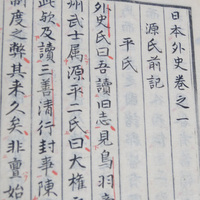 日本外史卷之一
源氏前記
平氏
外史氏曰吾讀旧志見鳥羽
州武士属源平二氏曰大權
此欤及讀三善清行封事陳
制度之弊其来久矣非亶始